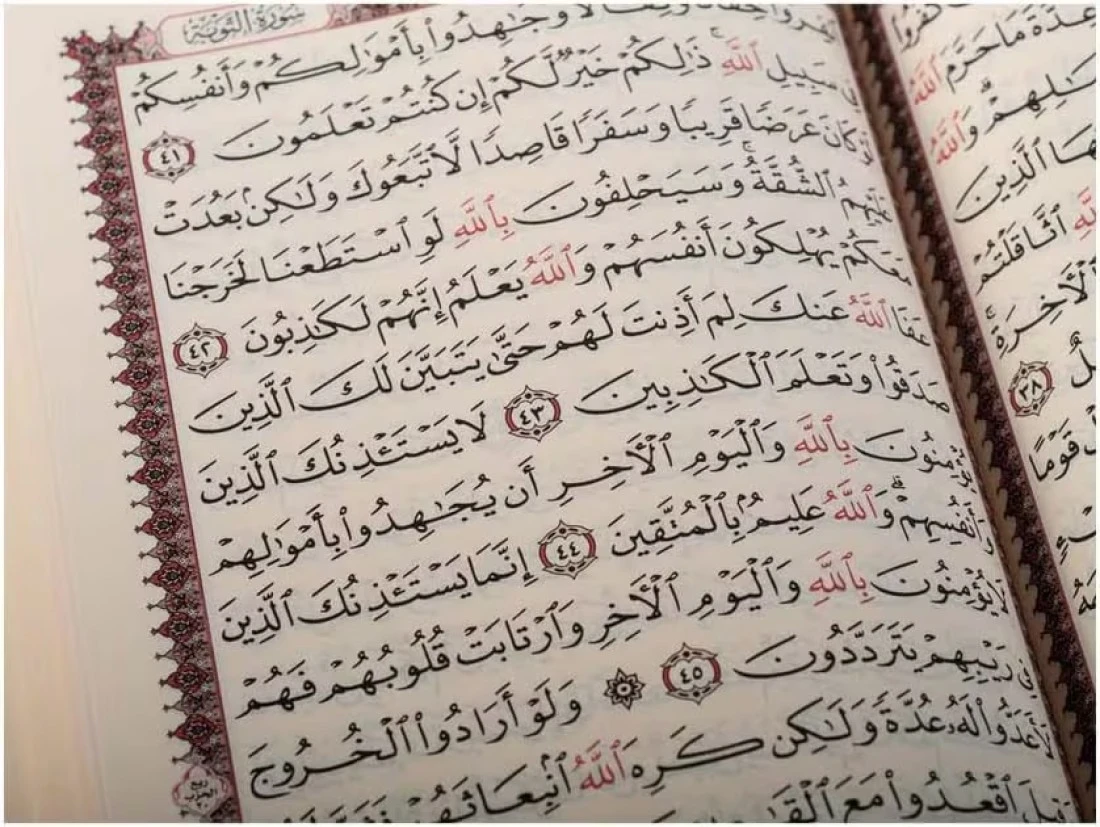 كَفَرُوا۟
عِدَّةَ مَا حَرَّمَ ٱللَّهُ
وَٱللَّهُ
ٱلَّذِينَ
ٱثَّاقَلْتُمْ
ٱلْأَخِرَةِۚ
٣٨
قَوْمًا
سُورَةُ التَّوْبَةِ
وَجَٰهِدُوا۟ بِأَمْوَٰلِكُمْ وَأَنفُسِكُمْ
فِى سَبِيلِ ٱللَّهِۚ ذَٰلِكُمْ خَيْرٌ لَّكُمْ إِن كُنتُمْ تَعْلَمُونَ ٤١
لَوْ كَانَ عَرَضًا قَرِيبًا وَسَفَرًا قَاصِدًا لَّٱتَّبَعُوكَ وَلَٰكِنۢ بَعُدَتْ
عَلَيْهِمُ ٱلشُّقَّةُۚ وَسَيَحْلِفُونَ بِٱللَّهِ لَوِ ٱسْتَطَعْنَا لَخَرَجْنَا
مَعَكُمْ يُهْلِكُونَ أَنفُسَهُمْ وَٱللَّهُ يَعْلَمُ إِنَّهُمْ لَكَٰذِبُونَ ٤٢
عَفَا ٱللَّهُ عَنكَ لِمَ أَذِنتَ لَهُمْ حَتَّىٰ يَتَبَيَّنَ لَكَ ٱلَّذِينَ
صَدَقُوا۟ وَتَعْلَمَ ٱلْكَٰذِبِينَ ٤٣ لَا يَسْتَـْٔذِنُكَ ٱلَّذِينَ
يُؤْمِنُونَ بِٱللَّهِ وَٱلْيَوْمِ ٱلْأَخِرِ أَن يُجَٰهِدُوا۟ بِأَمْوَٰلِهِمْ
وَأَنفُسِهِمْۗ وَٱللَّهُ عَلِيمٌۢ بِٱلْمُتَّقِينَ ٤٤ إِنَّمَا يَسْتَـْٔذِنُكَ ٱلَّذِينَ
لَا يُؤْمِنُونَ بِٱللَّهِ وَٱلْيَوْمِ ٱلْأَخِرِ وَٱرْتَابَتْ قُلُوبُهُمْ فَهُمْ
فِى رَيْبِهِمْ يَتَرَدَّدُونَ ٤٥ ۞ وَلَوْ أَرَادُوا۟ ٱلْخُرُوجَ
لَأَعَدُّوا۟ لَهُۥ عُدَّةً وَلَٰكِن كَرِهَ ٱللَّهُ ٱنۢبِعَاثَهُمْ
ٱقْعُدُوا۟ مَعَ